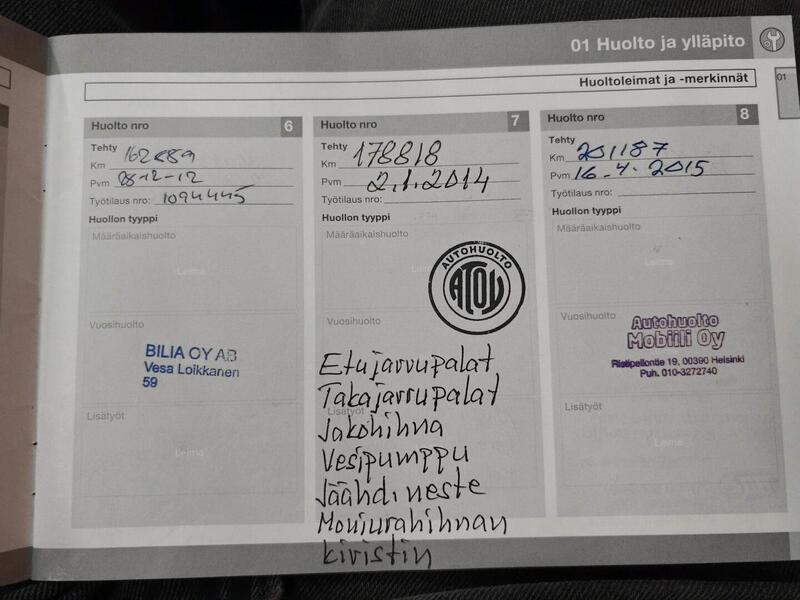 01 Huolto ja ylläpito
Huoltoleimat ja -merkinnät
01
Huolto nro 6
Tehty
Km
Pvm 28-12-12
Työtilaus nro: 1094445
Huollon tyyppi
Määräaikaishuolto
Leima
Vuosihuolto
BILIA OY AB
Vesa Loikkanen
59
Lisätyöt
Leima
Huolto nro 7
Tehty
Km 178818
Pvm 2.1.2014
Työtilaus nro:
Huollon tyyppi
Määräaikaishuolto
AUTOHUOLTO
ATOY
Vuosihuolto
Etujarrupalat
Takajarrupalat
Lisätyöt
Jakohihna
Vesipumppu
Jäähd.neste
Moniurahihnan
kiristin
Huolto nro 8
Tehty
Km 201187
Pvm 16.4.2015
Työtilaus nro:
Huollon tyyppi
Määräaikaishuolto
Leima
Vuosihuolto
Autohuolto
Mobiili Oy
Ristipellontie 19, 00390 Helsinki
Puh. 010-3272740
Lisätyöt
Leima